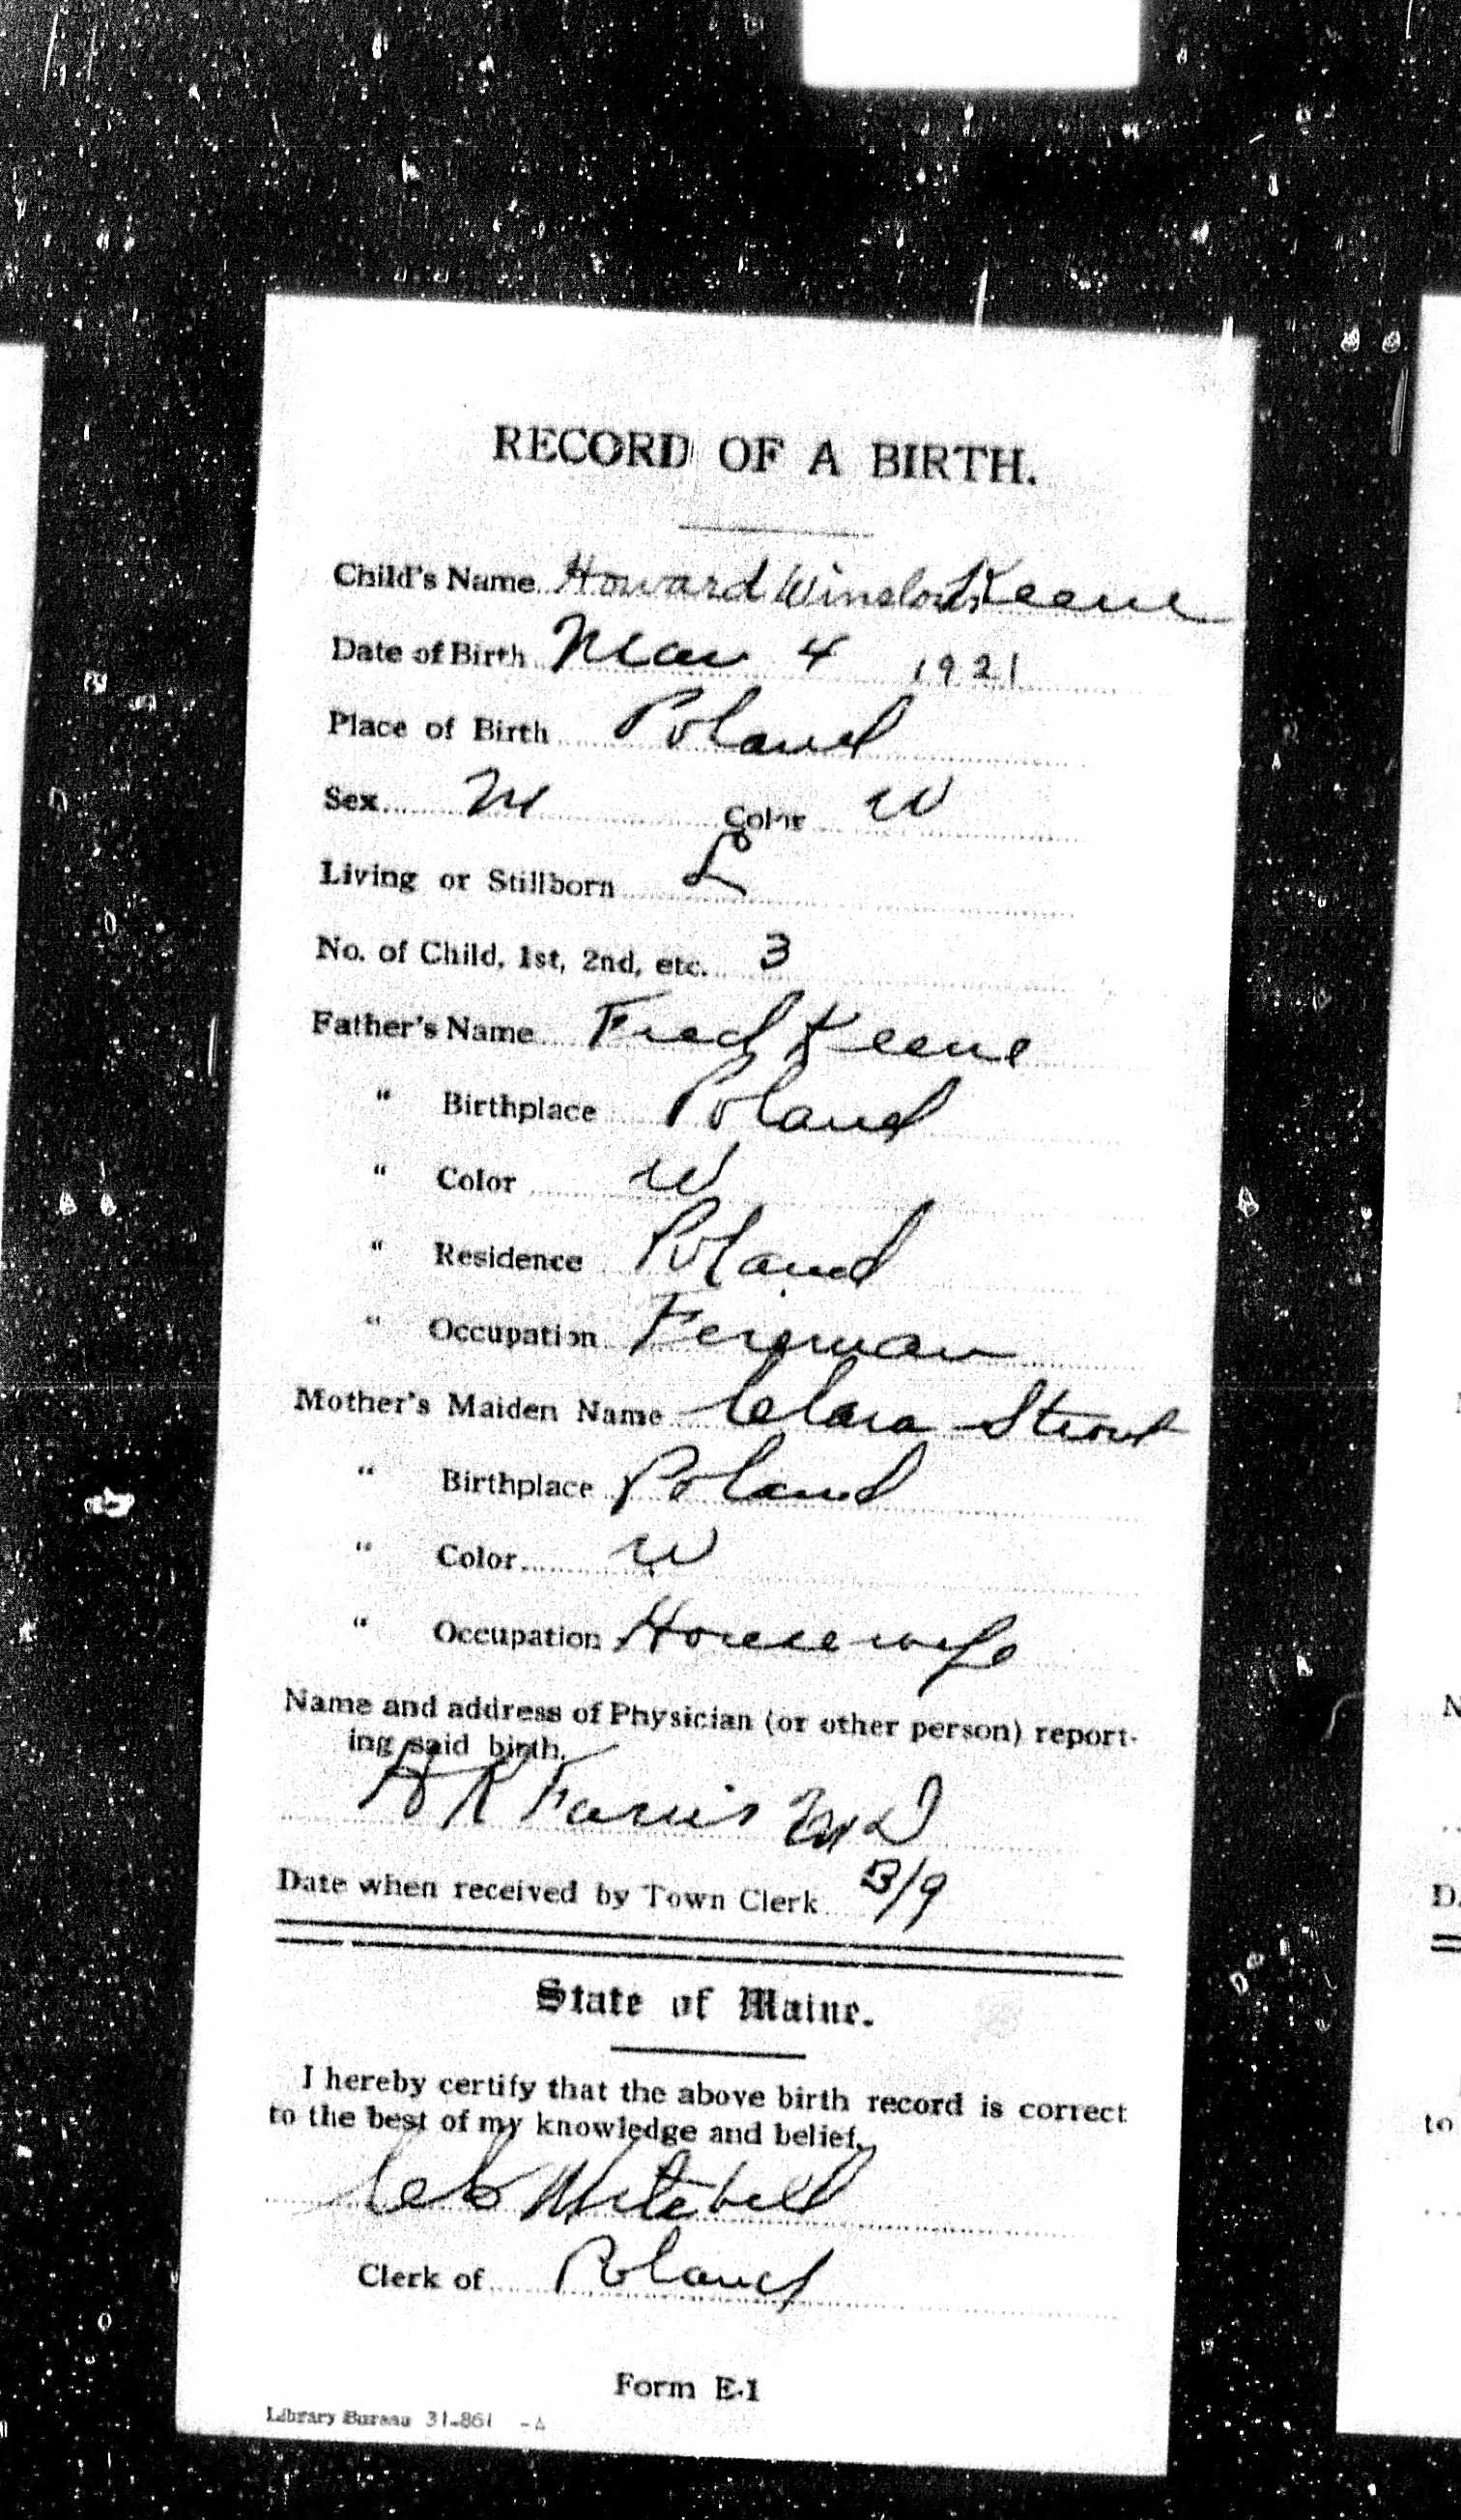 RECORD OF A BIRTH.
Child's Name Howard Winslow Keene
Date of Birth Mar 4 1921
Place of Birth Poland
Sex M Color W
Living or Stillborn L
No. of Child, 1st, 2nd, etc. 3
Father's Name Fred Keene
" Birthplace Poland
" Color W
" Residence Poland
" Occupation
Mother's Maiden Name Clara Strout
" Birthplace Poland
" Color W
" Occupation Housewife
Name and address of Physician (or other person) report-
ing said birth.
H K Farris MD
Date when received by Town Clerk 3/9
State of Maine.
I hereby certify that the above birth record is correct
to the best of my knowledge and belief.
Mitchell
Clerk of Poland
Form E-1
Library Bureau 31-861